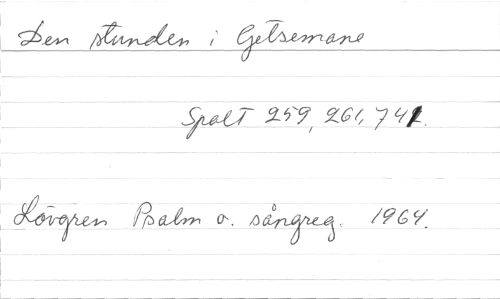 Den stunden i Getsemane
Spalt 259, 261, 741.
Lövgren Psalm o. sångreg. 1964.